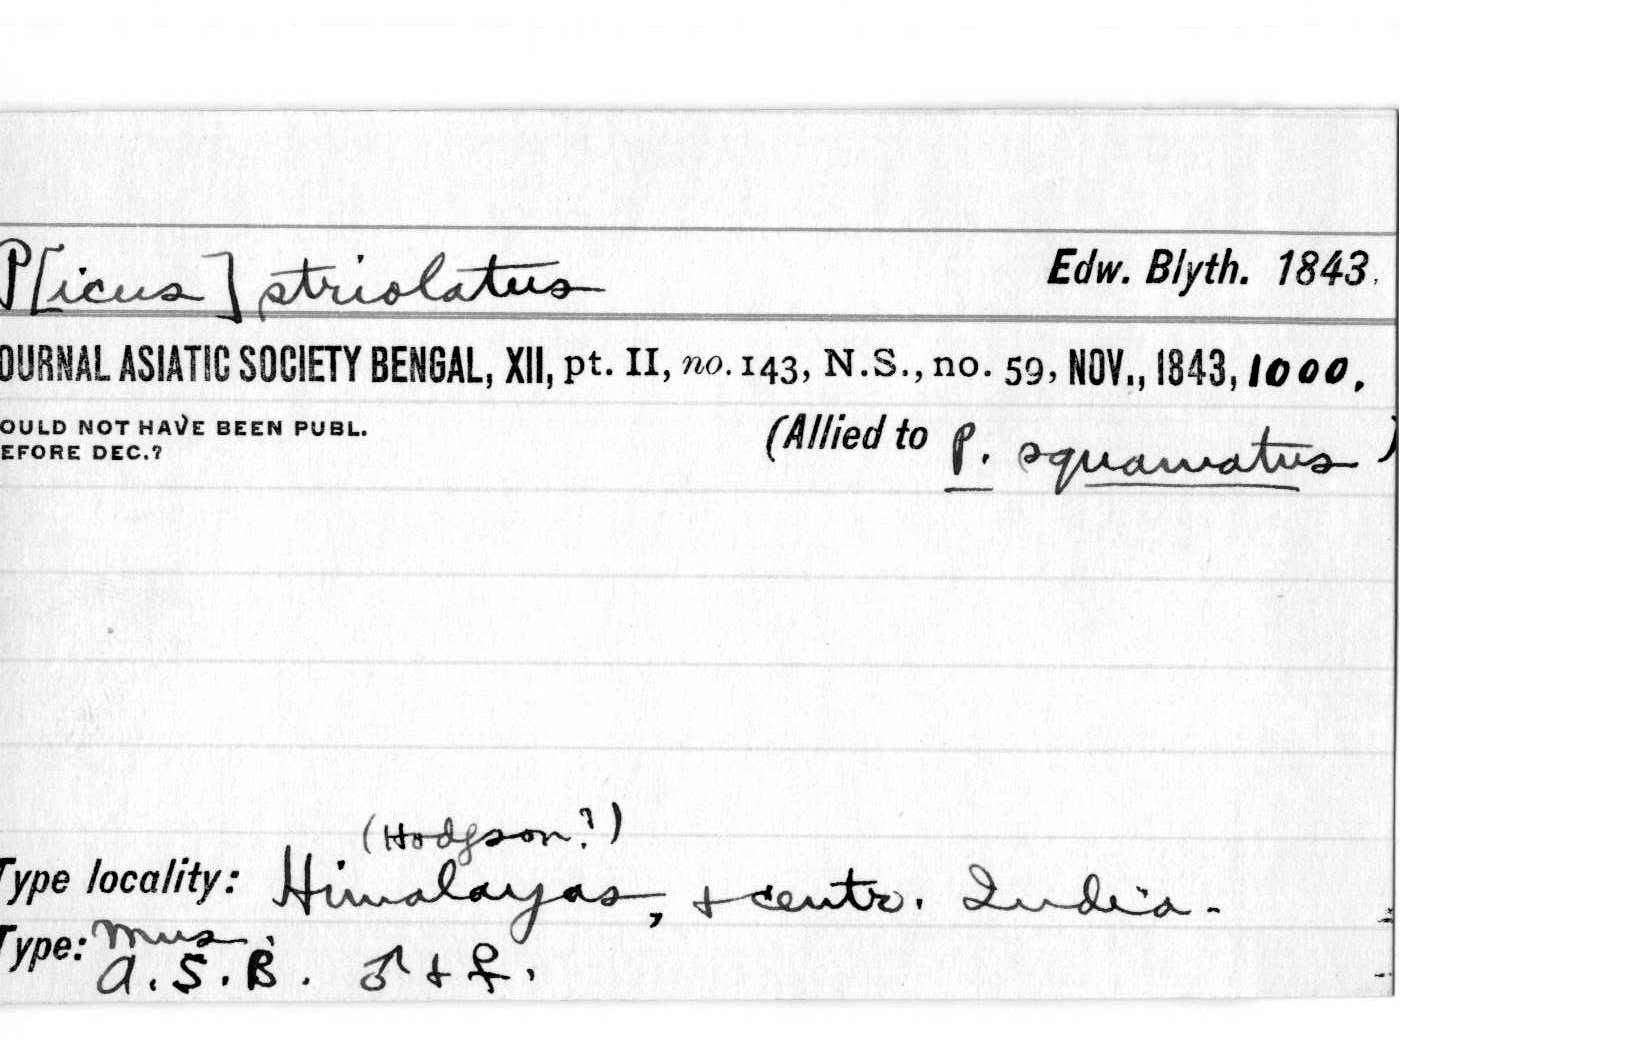 P[icus] striolatus Edw. Blyth. 1843.
OURNAL ASIATIC SOCIETY BENGAL, XII, pt. II, no. 143, N.S., no. 59, NOV., 1843, 1000.
OULD NOT HAVE BEEN PUBL. (Allied to P. squamatus)
EFORE DEC.?
(Hodgson?)
Type locality: Himalayas, + centr. India.
Type: Mus.
A.S.B. ♂ + ♀.